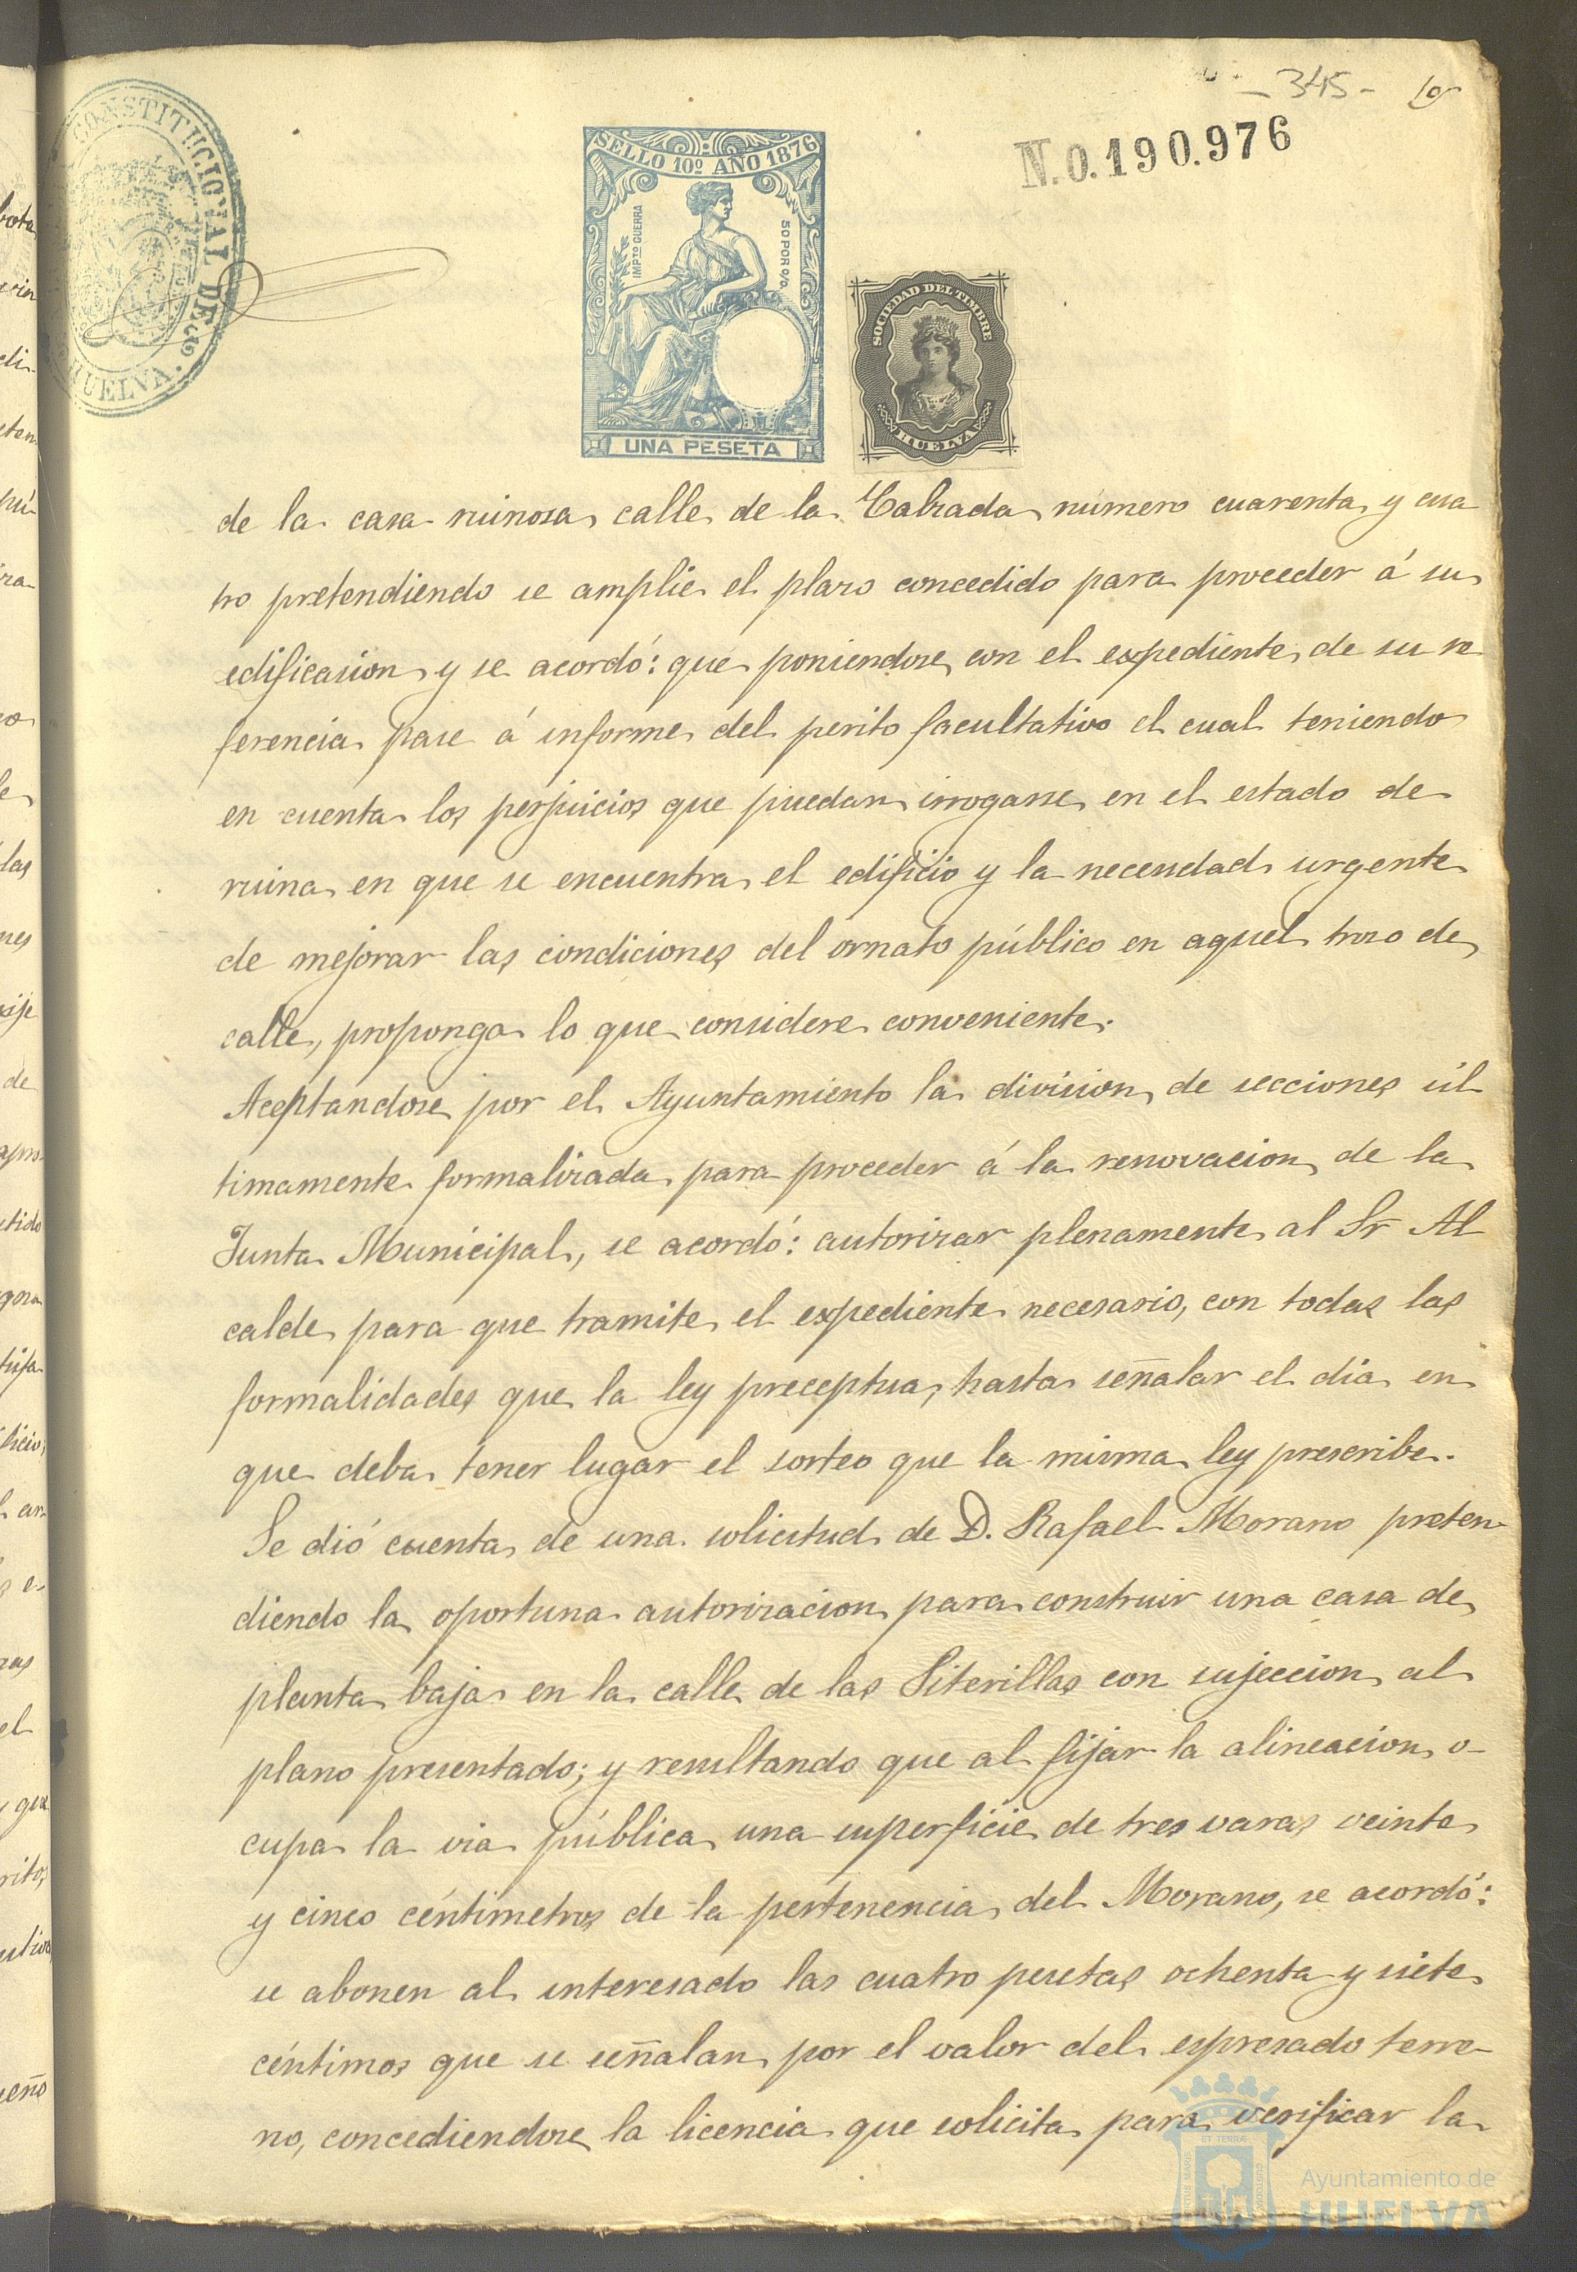 - 345 -
N.0.190.976
CONSTITUCIONAL DE
HUELVA.
SELLO 10º AÑO 1876
IMPTO GUERRA
50 POR 0/0
UNA PESETA
SOCIEDAD DEL TIMBRE
HUELVA
de la casa ruinosa calle de la Calzada número cuarenta y cua
tro pretendiendo se amplie el plazo concedido para proceder á su
edificacion y se acordó: que poniendose con el expediente de su re
ferencia pase á informe del perito facultativo el cual teniendo
en cuenta los perjuicios que puedan irrogarse en el estado de
ruina en que se encuentra el edificio y la necesidad urgente
de mejorar las condiciones del ornato público en aquel trozo de
calle, proponga lo que considere conveniente.
Aceptandose por el Ayuntamiento la division de secciones úl
timamente formalizada para proceder á la renovacion de la
Junta Municipal, se acordó: autorizar plenamente al Sr Al
calde para que tramite el expediente necesario, con todas las
formalidades que la ley preceptua, hasta señalar el dia en
que deba tener lugar el sorteo que la misma ley prescribe.
Se dió cuenta de una solicitud de D. Rafael Morano preten
diendo la oportuna autorizacion para construir una casa de
planta baja en la calle de las Siterillas con sujeccion al
plano presentado; y resultando que al fijar la alineacion o-
cupa la via pública una superficie de tres varas veinte
y cinco céntimetros de la pertenencia del Morano, se acordó:
se abonen al interesado las cuatro pesetas ochenta y siete
céntimos que se señalan por el valor del espresado terre-
no, concediendose la licencia que solicita para verificar la
Ayuntamiento de
HUELVA